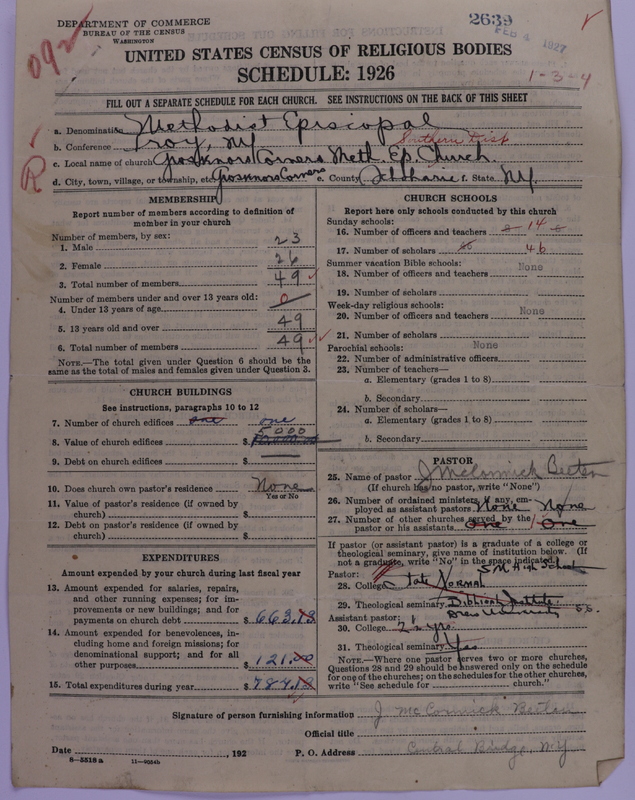 DEPARTMENT OF COMMERCE
BUREAU OF THE CENSUS
WASHINGTON
2639
FEB 4 1927
092
UNITED STATES CENSUS OF RELIGIOUS BODIES
SCHEDULE: 1926
1-3-4
FILL OUT A SEPARATE SCHEDULE FOR EACH CHURCH. SEE INSTRUCTIONS ON THE BACK OF THIS SHEET
a. Denomination Methodist Episcopal
b. Conference Troy, NY Southern Dist
c. Local name of church Grosvnors Corners Meth. Ep. Church.
R
d. City, town, village, or township, etc. Grosvnors Corners e. County Schoharie f. State N.Y.
MEMBERSHIP
Report number of members according to definition of member in your church
Number of members, by sex:
1. Male 23
2. Female 26
3. Total number of members 49
Number of members under and over 13 years old:
4. Under 13 years of age 0
5. 13 years old and over 49
6. Total number of members 49
NOTE.—The total given under Question 6 should be the
same as the total of males and females given under Question 3.
CHURCH BUILDINGS
See instructions, paragraphs 10 to 12
7. Number of church edifices one one
8. Value of church edifices $ 5000
9. Debt on church edifices $
10. Does church own pastor's residence None
Yes or No
11. Value of pastor's residence (if owned by
church) $
12. Debt on pastor's residence (if owned by
church) $
EXPENDITURES
Amount expended by your church during last fiscal year
13. Amount expended for salaries, repairs,
and other running expenses; for im-
provements or new buildings; and for
payments on church debt $ 663.13
14. Amount expended for benevolences, in-
cluding home and foreign missions; for
denominational support; and for all
other purposes 121.00
15. Total expenditures during year $ 784.13
CHURCH SCHOOLS
Report here only schools conducted by this church
Sunday schools:
16. Number of officers and teachers 14
17. Number of scholars 46
Summer vacation Bible schools:
18. Number of officers and teachers None
19. Number of scholars
Week-day religious schools:
20. Number of officers and teachers None
21. Number of scholars
Parochial schools: None
22. Number of administrative officers
23. Number of teachers—
a. Elementary (grades 1 to 8)
b. Secondary
24. Number of scholars—
a. Elementary (grades 1 to 8)
b. Secondary
PASTOR
25. Name of pastor J McCormick
(If church has no pastor, write "None")
26. Number of ordained ministers, if any, em-
ployed as assistant pastors None None
27. Number of other churches served by the
pastor or his assistants One 1 One
If pastor (or assistant pastor) is a graduate of a college or
theological seminary, give name of institution below. (If
not a graduate, write "No" in the space indicated.)
Pastor: High School
28. College State Normal
29. Theological seminary Biblical Institute
Drew University
Assistant pastor:
30. College 2½ yrs.
31. Theological seminary Yes
NOTE.—Where one pastor serves two or more churches,
Questions 28 and 29 should be answered only on the schedule
for one of the churches; on the schedules for the other churches,
write "See schedule for church."
Signature of person furnishing information J McCormick
Official title
Date , 192 P. O. Address Central Bridge, N.Y.
8—5518 a 11—9054b